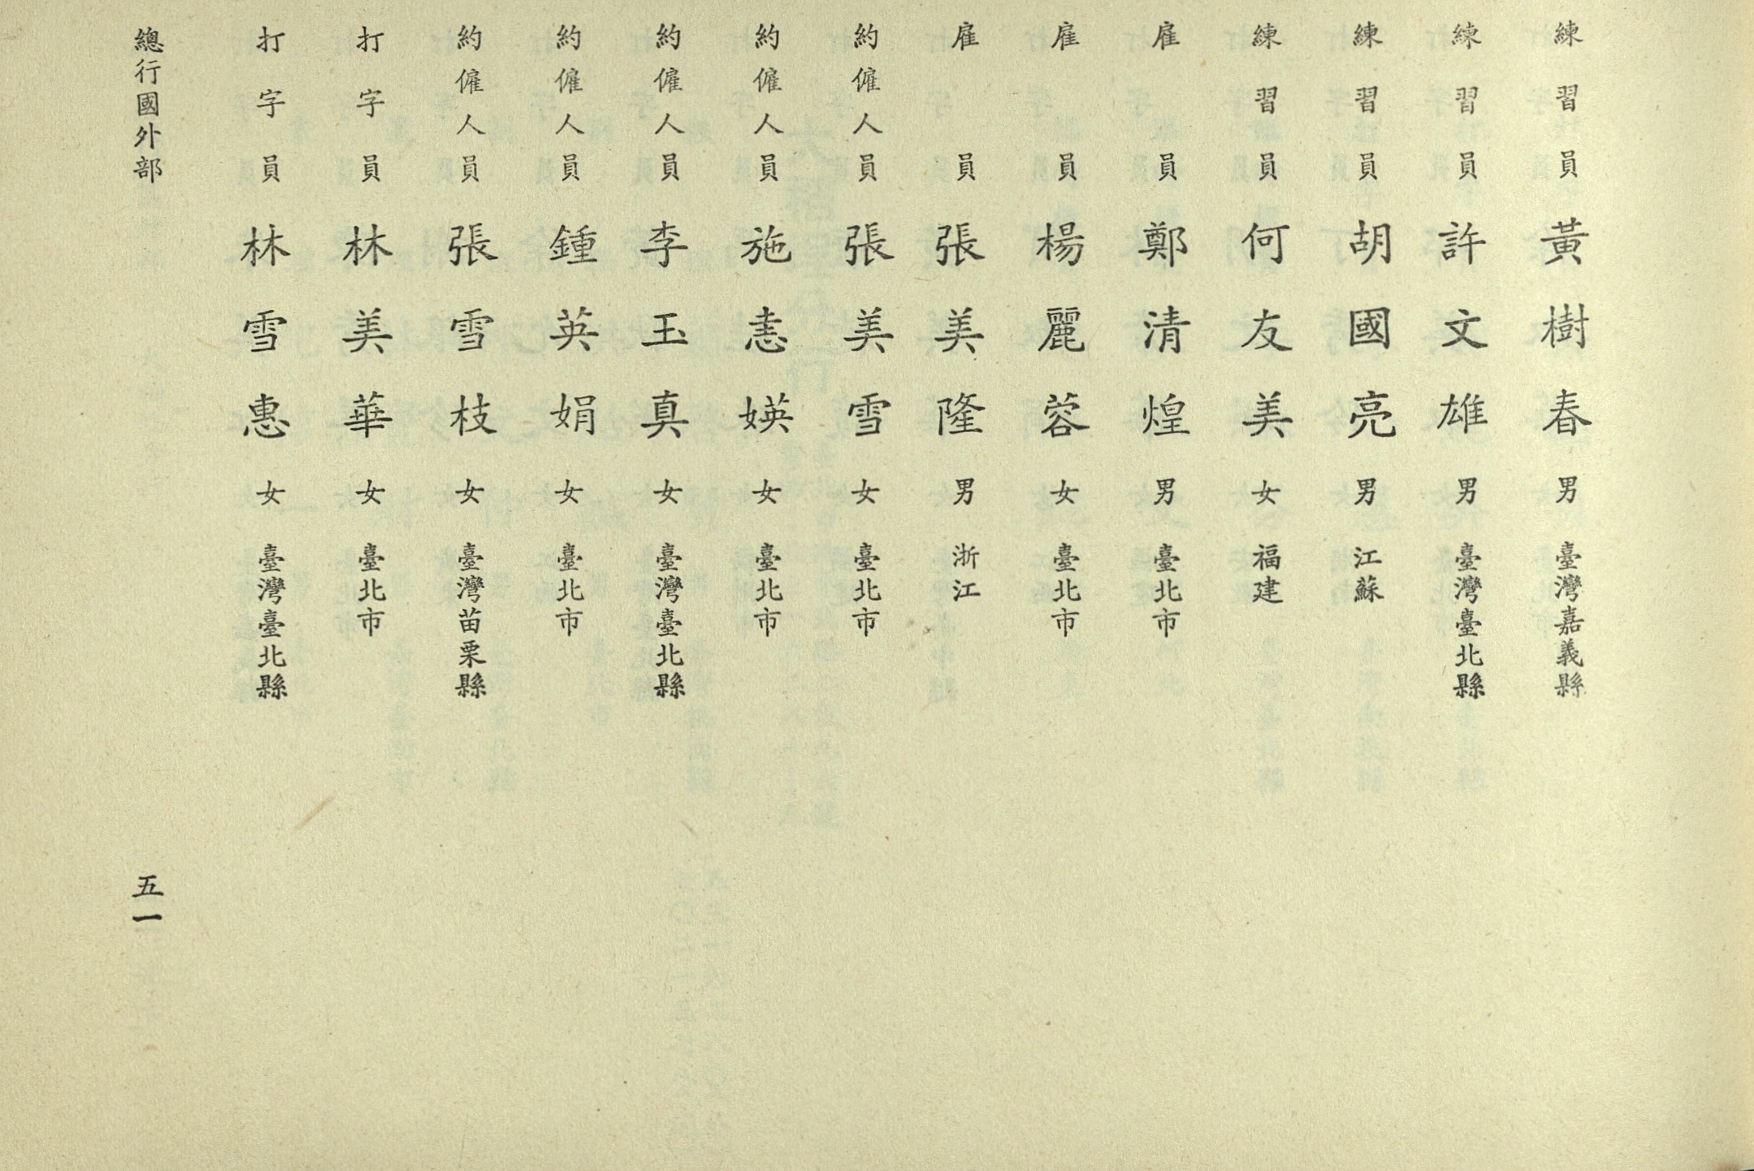 練習員 黃樹春 男 臺灣嘉義縣
練習員 許文雄 男 臺灣臺北縣
練習員 胡國亮 男 江蘇
練習員 何友美 女 福建
雇員 鄭清煌 男 臺北市
雇員 楊麗蓉 女 臺北市
雇員 張美隆 男 浙江
約僱人員 張美雪 女 臺北市
約僱人員 施恚媖 女 臺北市
約僱人員 李玉真 女 臺灣臺北縣
約僱人員 鍾英娟 女 臺北市
約僱人員 張雪枝 女 臺灣苗栗縣
打字員 林美華 女 臺北市
打字員 林雪惠 女 臺灣臺北縣
總行國外部 五一